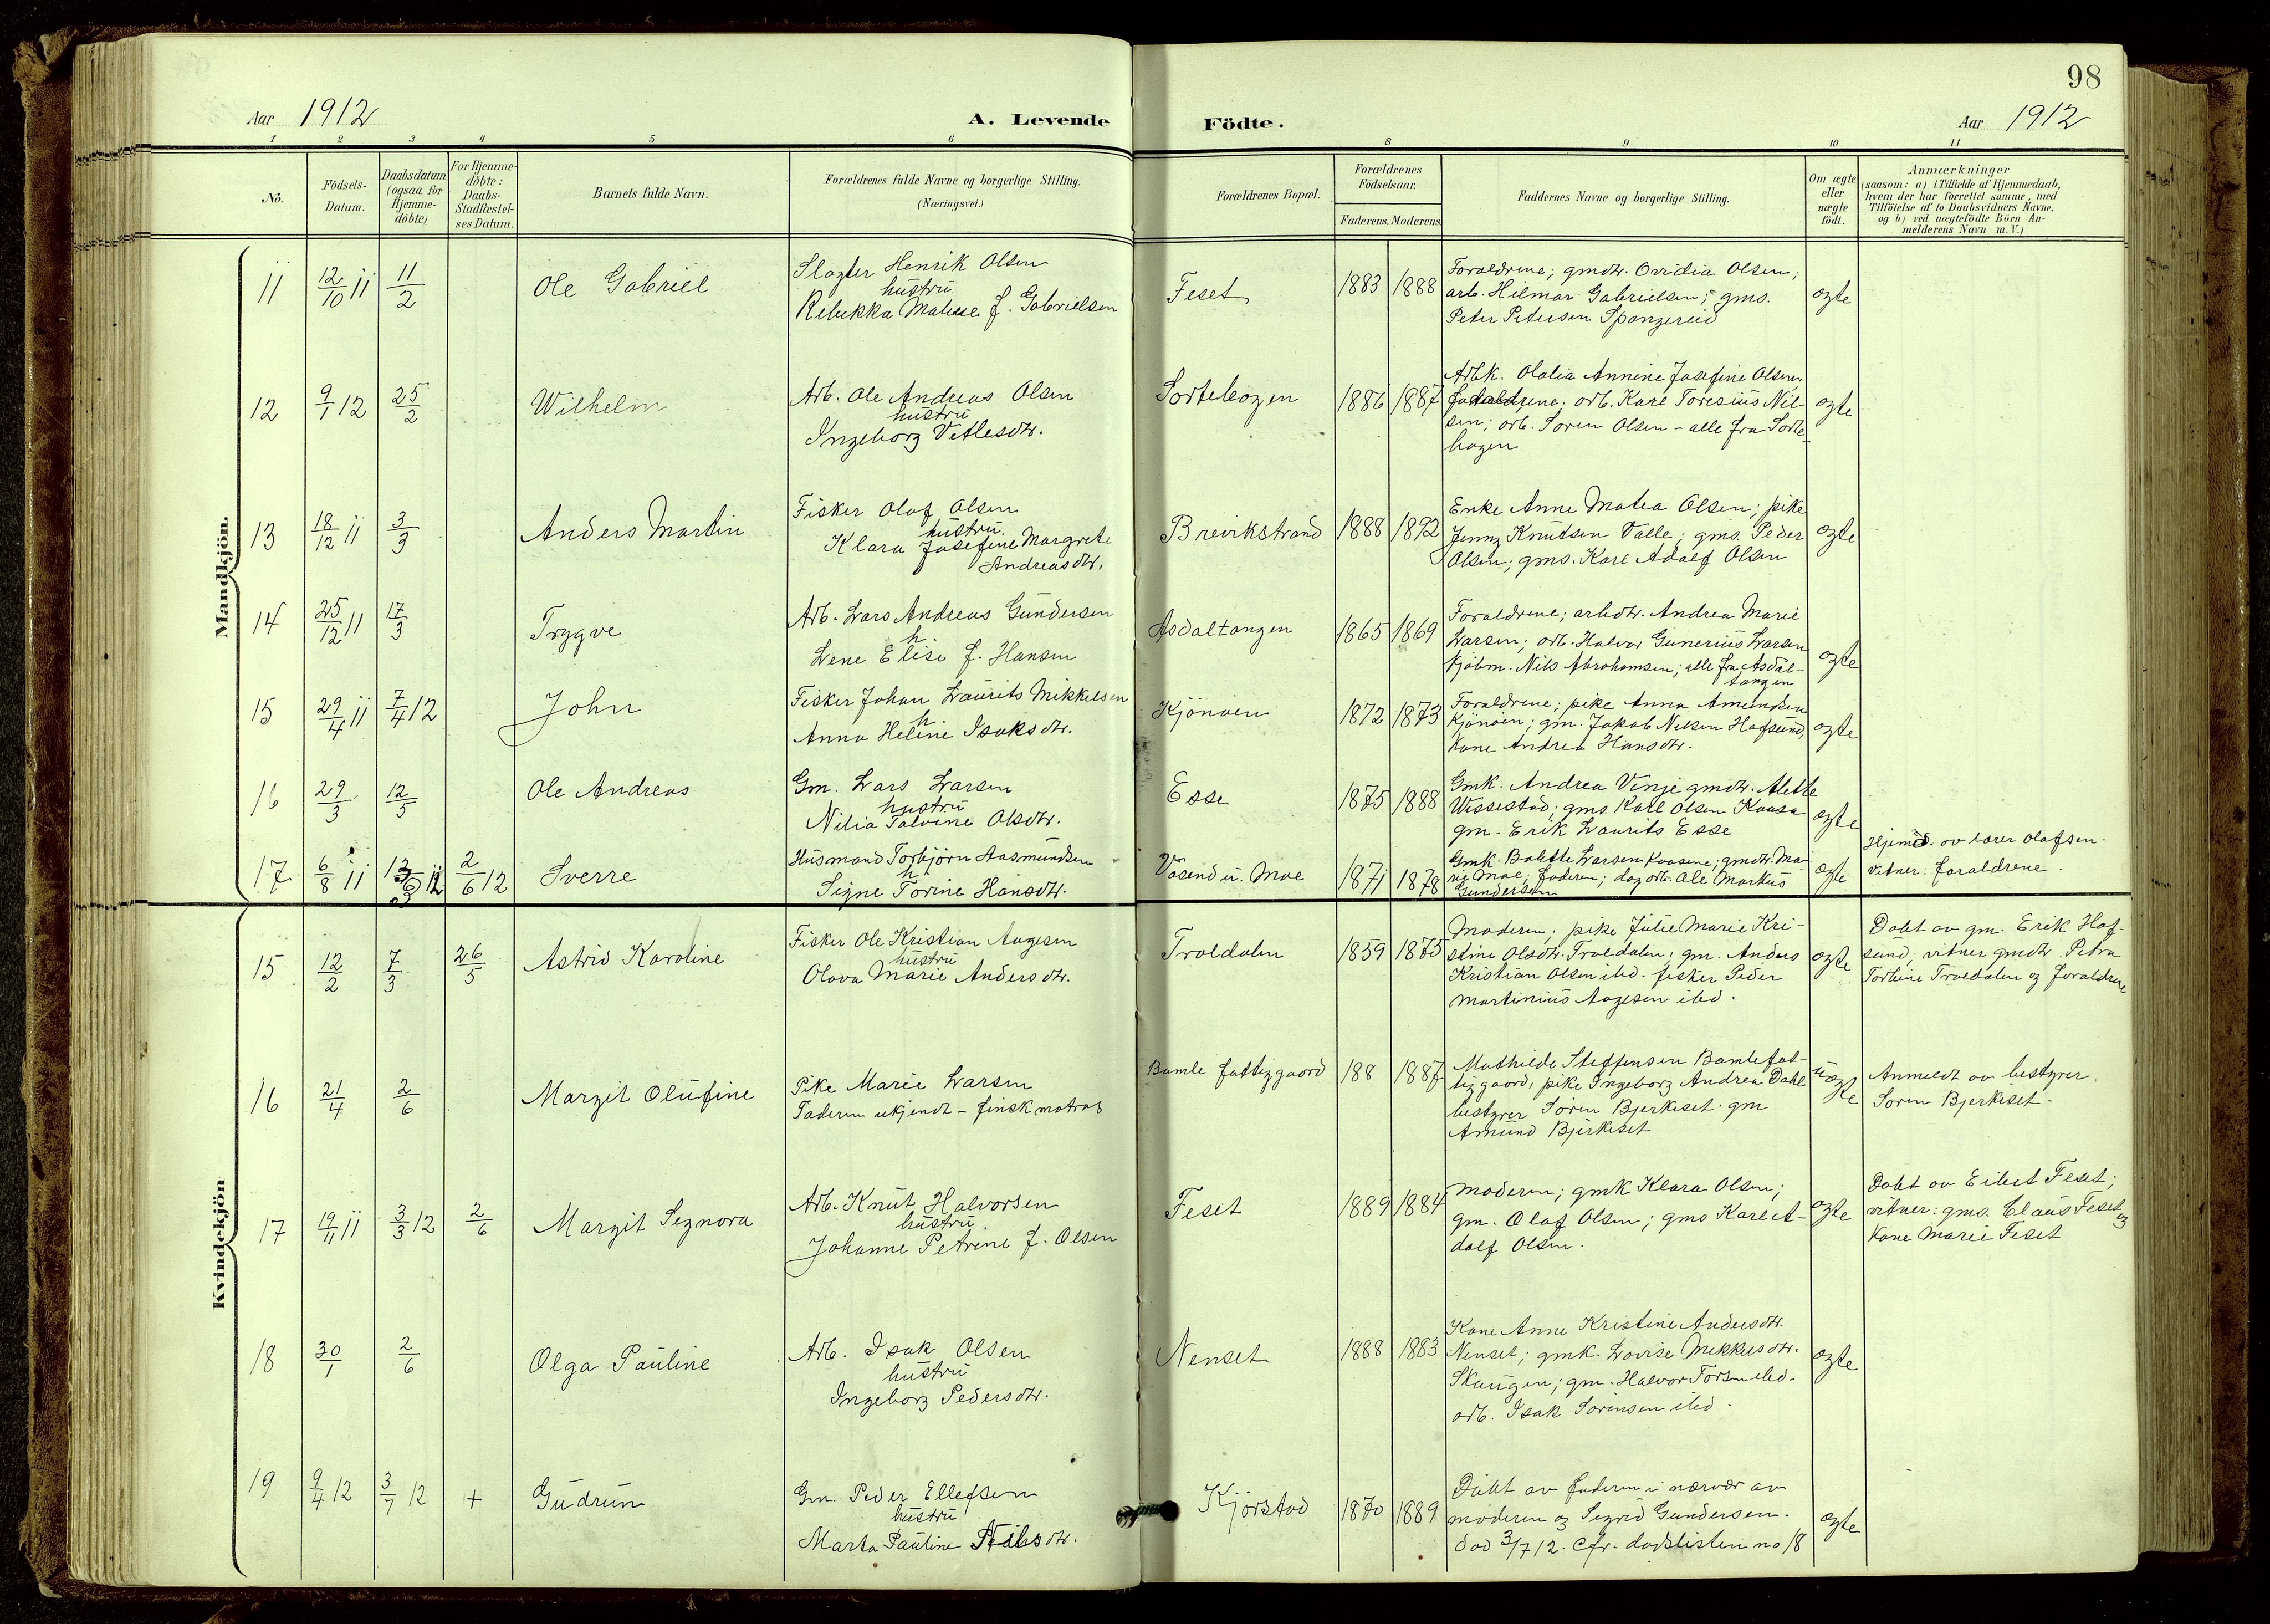 98
Aar 1912
A. Levende
Födte.
Aar 1912
1 2 3 4 5 6 8 9 10 11
No.
Födsels-
Datum.
Daabsdatum
(ogsaa for
Hjemme-
döbte)
For Hjemme-
döbte:
Daabs-
Stadfæstel-
ses Datum.
Barnets fulde Navn.
Forældrenes fulde Navne og borgerlige Stilling.
(Næringsvei.)
Forældrenes Bopæl.
Forældrenes
Födselsaar.
Faderens. Moderens.
Faddernes Navne og borgerlige Stilling.
Om ægte
eller
uægte
födt.
Anmærkninger
(saasom: a) i Tilfælde af Hjemmedaab,
hvem der har forrettet samme, med
Tilföielse af to Daabsvidners Navne.
og b) ved uægtefödte Börn An-
melderens Navn m. V.)
Mandkjön.
11 12/10 11 11/2 Ole Gabriel
Henrik Olsen
hustru
Rebekka f. Gabrielsen
Feset 1883 1888
Foraldrene; gmdtr. Ovidia Olsen;
arb. Hilmar Gabrielsen; gms.
Peter Petersen Spangereid
ægte
12 9/1 12 25/2 Wilhelm
Arb. Ole Andreas Olsen
hustru
Ingeborg Vetlesdtr.
Sortebogen 1886 1887
Arbk. Olalia Annine Josefine Olsen;
arb. Karl Toresius Nil-
sen; arb. Soren Olsen - alle fra Sorte-
bogen
ægte
13 18/12 11 3/3 Anders Martin
Fisker Olaf Olsen
hustru
Klara Josefine Margrete
Andreasdtr.
Breivikstrand 1888 1892
Enke Anne Matea Olsen; pike
Jenny Knutsen Valle; gms. Peder
Olsen; gms. Karl Adolf Olsen
ægte
14 25/12 11 17/3 Trygve
Arb. Lars Andreas Gundersen
h
Lene Elise f. Hansen
Asdaltangen 1865 1869
Foraldrene; arbdtr. Andrea Marie
Larsen; arb. Halvor Gunerius Larsen
kjöbm. Nils Abrahamsen; alle fra Asdal-
tangen
ægte
15 29/4 11 7/4 12 John
Fisker Johan Laurits Mikkelsen
h
Anna Heline Isaksdtr.
Kjönöen 1872 1873
Foraldrene; pike Anna Amundsen
Kjönöen; gm. Jakob Nilsen Hafsund,
Kone Andrea Hansdtr.
ægte
16 29/3 12/5 Ole Andreas
Gm. Lars Larsen
hustru
Nilia Talvine Olsdtr.
Esse 1875 1888
Gmk. Andrea Vinje gmdtr. Alette
Wissestad; gms. Karl Olsen Kaasa
gm. Erik Laurits Esse
ægte
17 6/8 11 12 2/6 12 Sverre
Husmand Torbjörn Aasmundsen
h
Signe Torine Hansdtr.
Vasend u. Moe 1871 1878
Gmk. Bolette Larsen Kaasene; gmdtr. Ma-
rie Moe; faderen; dag arb. Ole Markus
Gundersen
ægte
Hjemd. av larer Olafsen.
vitner: foraldrene.
Kvindekjön
15 12/2 7/3 26/5 Astrid Karoline
Fisker Ole Kristian Aagesen
hustru
Olava Marie Andersdtr.
Troldalen 1859 1875
Moderen; pike Julie Marie Kri-
stine Olsdtr. Troldalen; gm. Anders
Kristian Olsen ibd. fisker Peder
Martinius Aagesen ibd.
ægte
Dobt av gm. Erik Haf-
sund, vitner gmdtr Petra
Torbine Troldalen og foraldrene
16 21/4 2/6 Margit Olufine
Pike Marie Larsen
Faderen ukjendt - finsk matros
Bamle fattiggaard 188 1887
Mathilde Steffensen Bamle fat-
tiggaard, pike Ingeborg Andrea Dahl
bestyrer Sören Bjerkeset. gm
Amund Bjerkeset
uægte
Anmeldt av bestyrer
Soren Bjerkeset.
17 19/11 11 3/3 12 2/6 Margit Segnora
Arb. Knut Halvorsen
hustru.
Johanne Petrine f. Olsen
Feset 1889 1884
Moderen; gmk Klara Olsen;
gm. Olaf Olsen; gms Karl A-
dolf Olsen.
ægte
Dobt av Eilert Feset;
vitner: gms. Claus Feset og
Kone Marie Feset
18 30/1 2/6 Olga Pauline
Arb. Isak Olsen
hustru
Ingeborg Pedersdtr.
Nenset 1888 1883
Kone Anne Kristine Andersdtr.
Nenset; gmk. Lovise Mikkelsdtr.
Skaugen; gm. Halvor Torsen ibd.
arb. Isak Sörensen ibd.
ægte
19 9/4 12 3/7 12 + Gudrun
Gm. Peder Ellefsen
hustru
Marta Pauline Nilsdtr.
Kjörstad 1870 1889
Döbt av faderen i nærvær av
moderen og Segrid Gundersen.
död 3/7 12. Cfr. dødslisten no 18
ægte